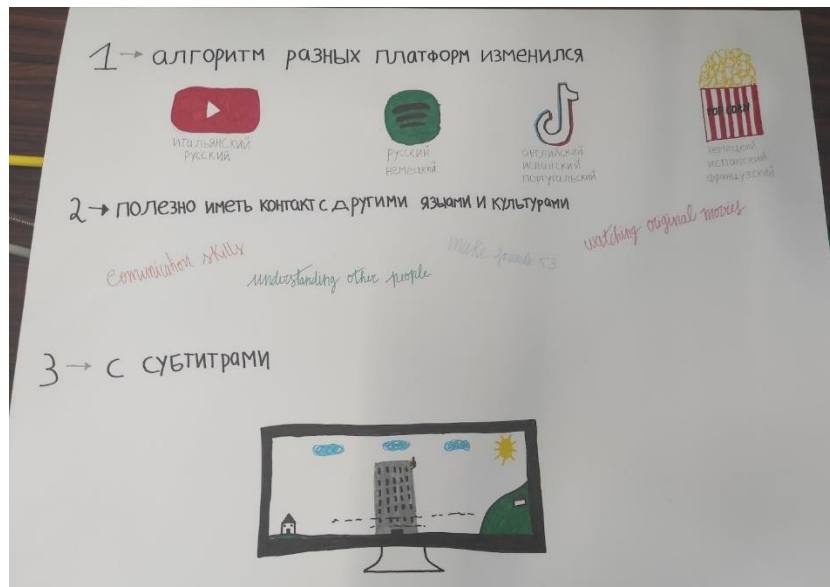 1 → алгоритм разных платформ изменился
POP CORN
итальянский
русский
русский
немецкий
английский
испанский
португальский
немецкий
испанский
французский
2 → полезно иметь контакт с другими языами и культурами
comunication skills
understanding other people
make friends <3
watching original movies
3 → с субтитрами